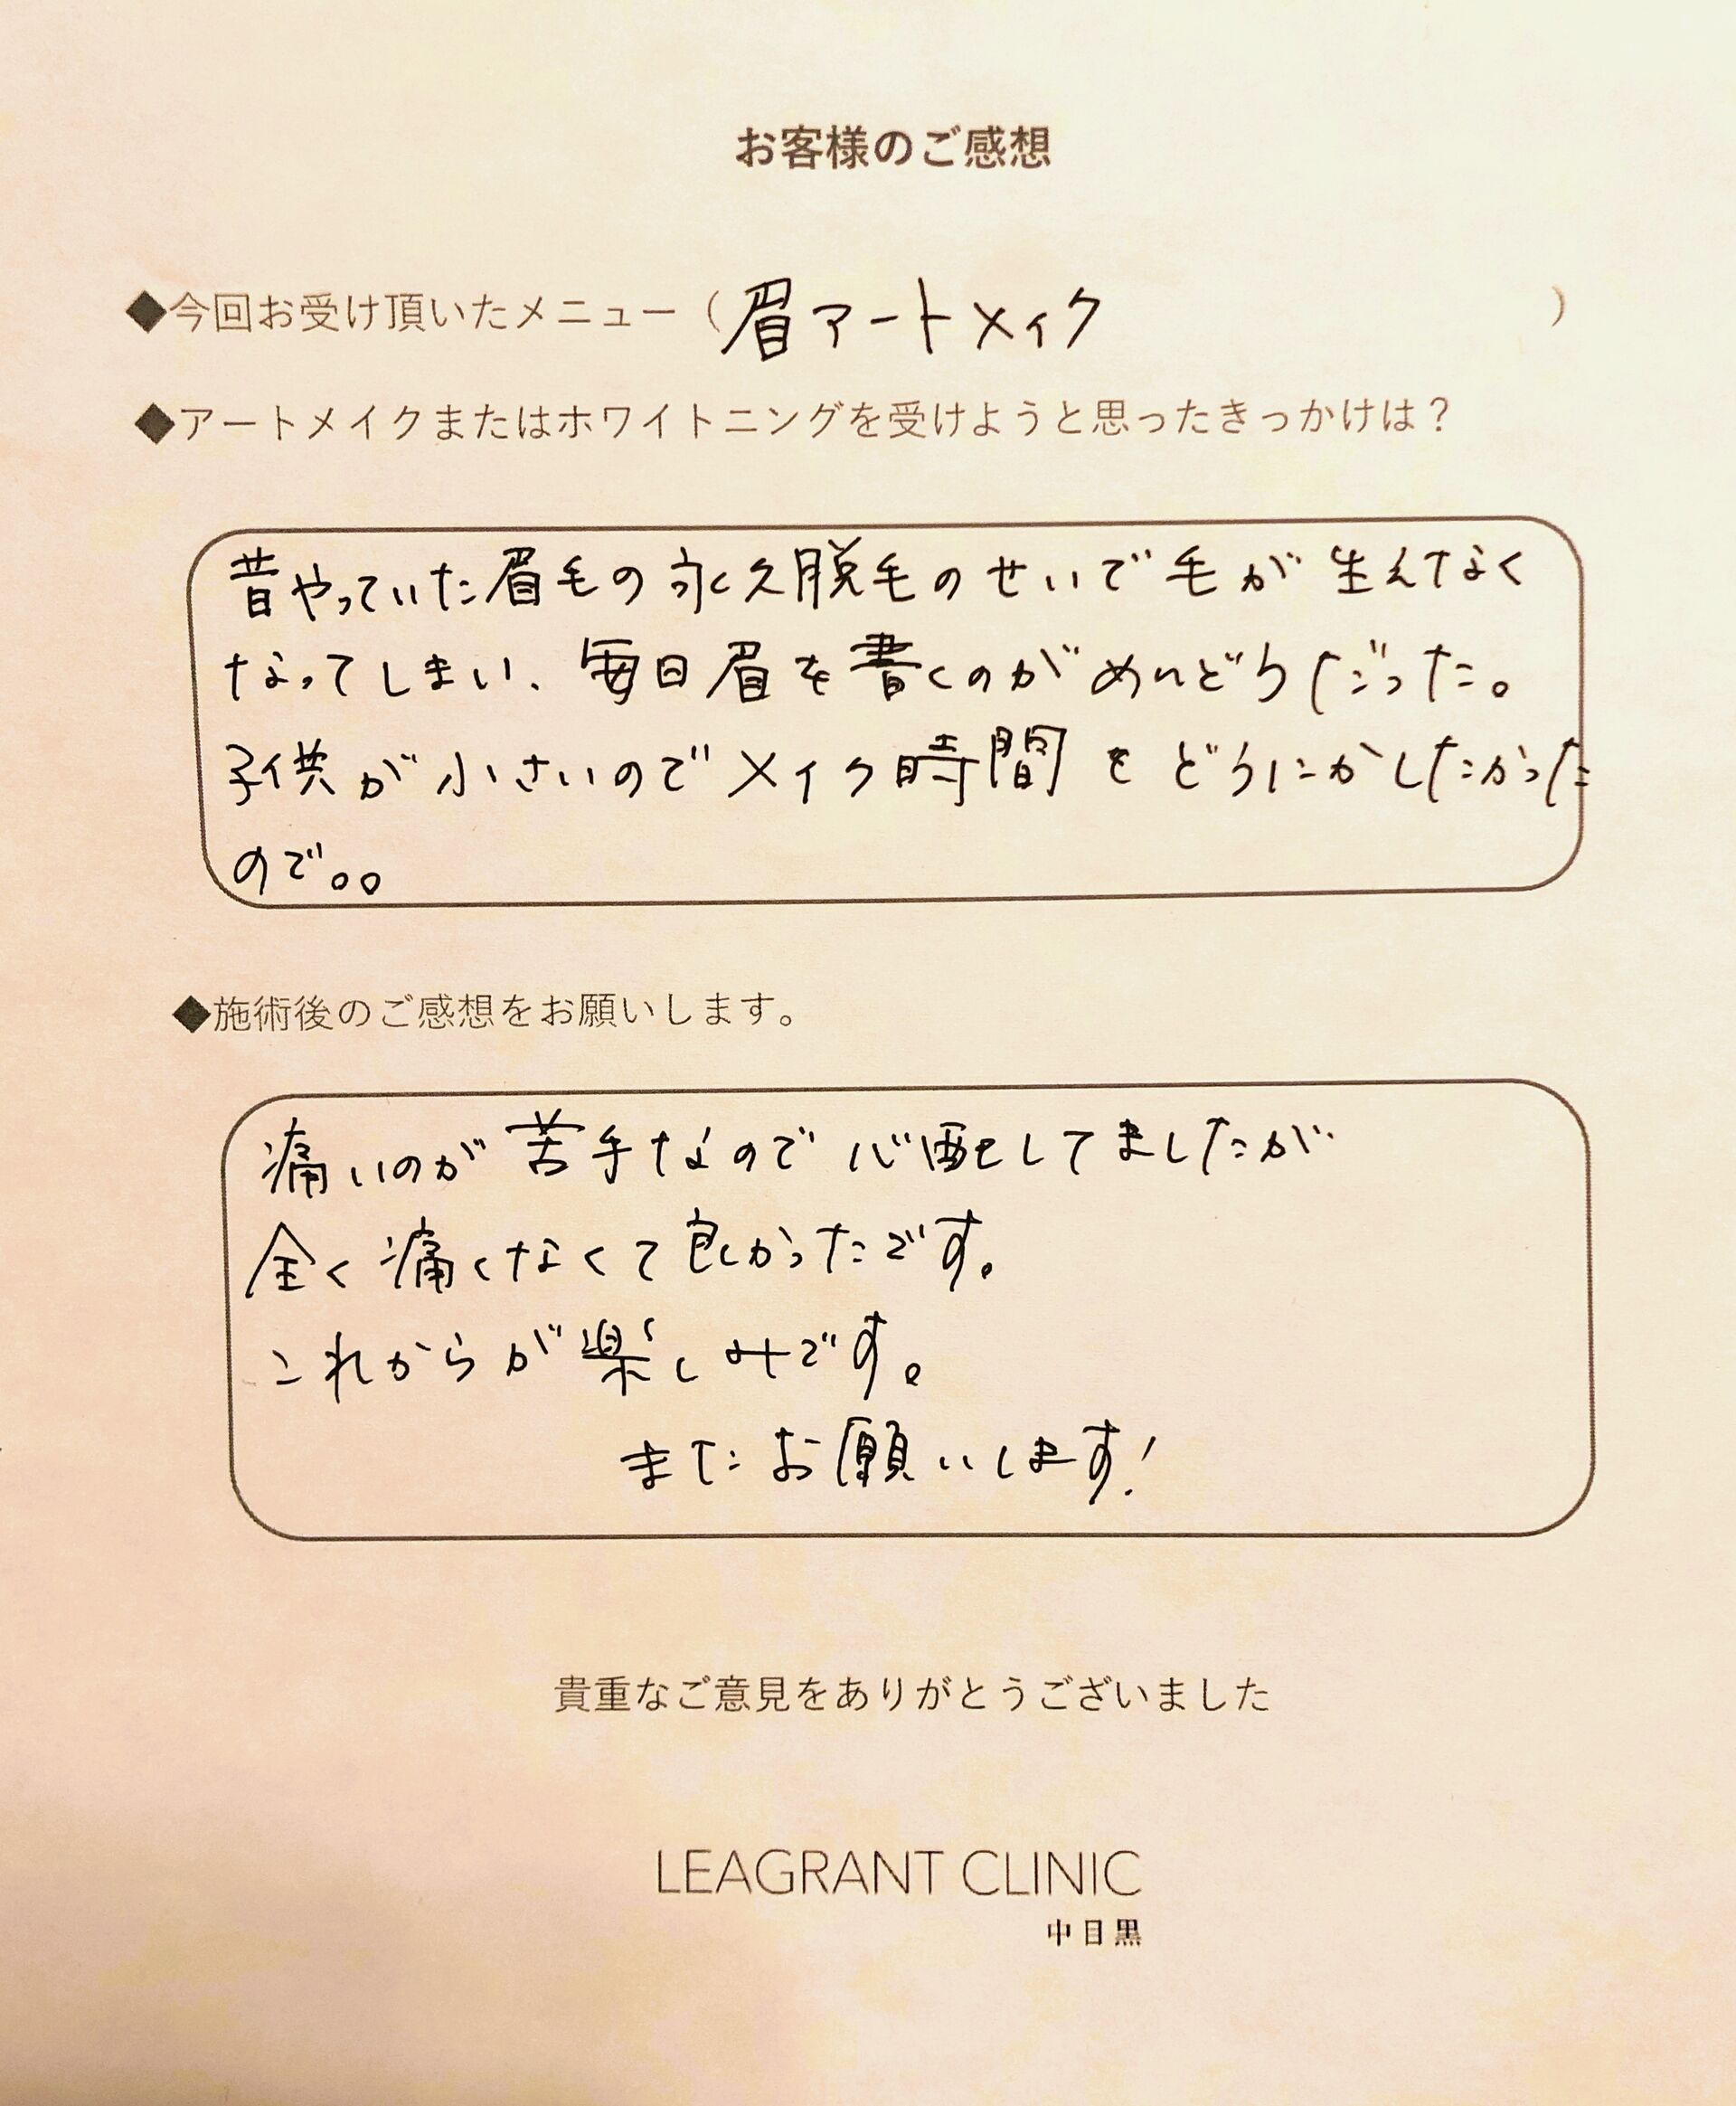 お客様のご感想
◆今回お受け頂いたメニュー（眉アートメイク）
◆アートメイクまたはホワイトニングを受けようと思ったきっかけは？
昔やっていた眉毛の永久脱毛のせいで毛が生えなく
なってしまい、毎日眉を書くのがめんどうだった。
子供が小さいのでメイク時間をどうにかしたかった
ので。。
◆施術後のご感想をお願いします。
痛いのが苦手なので心配してましたが
全く痛くなくて良かったです。
これからが楽しみです。
またお願いします！
貴重なご意見をありがとうございました
LEAGRANT CLINIC
中目黒